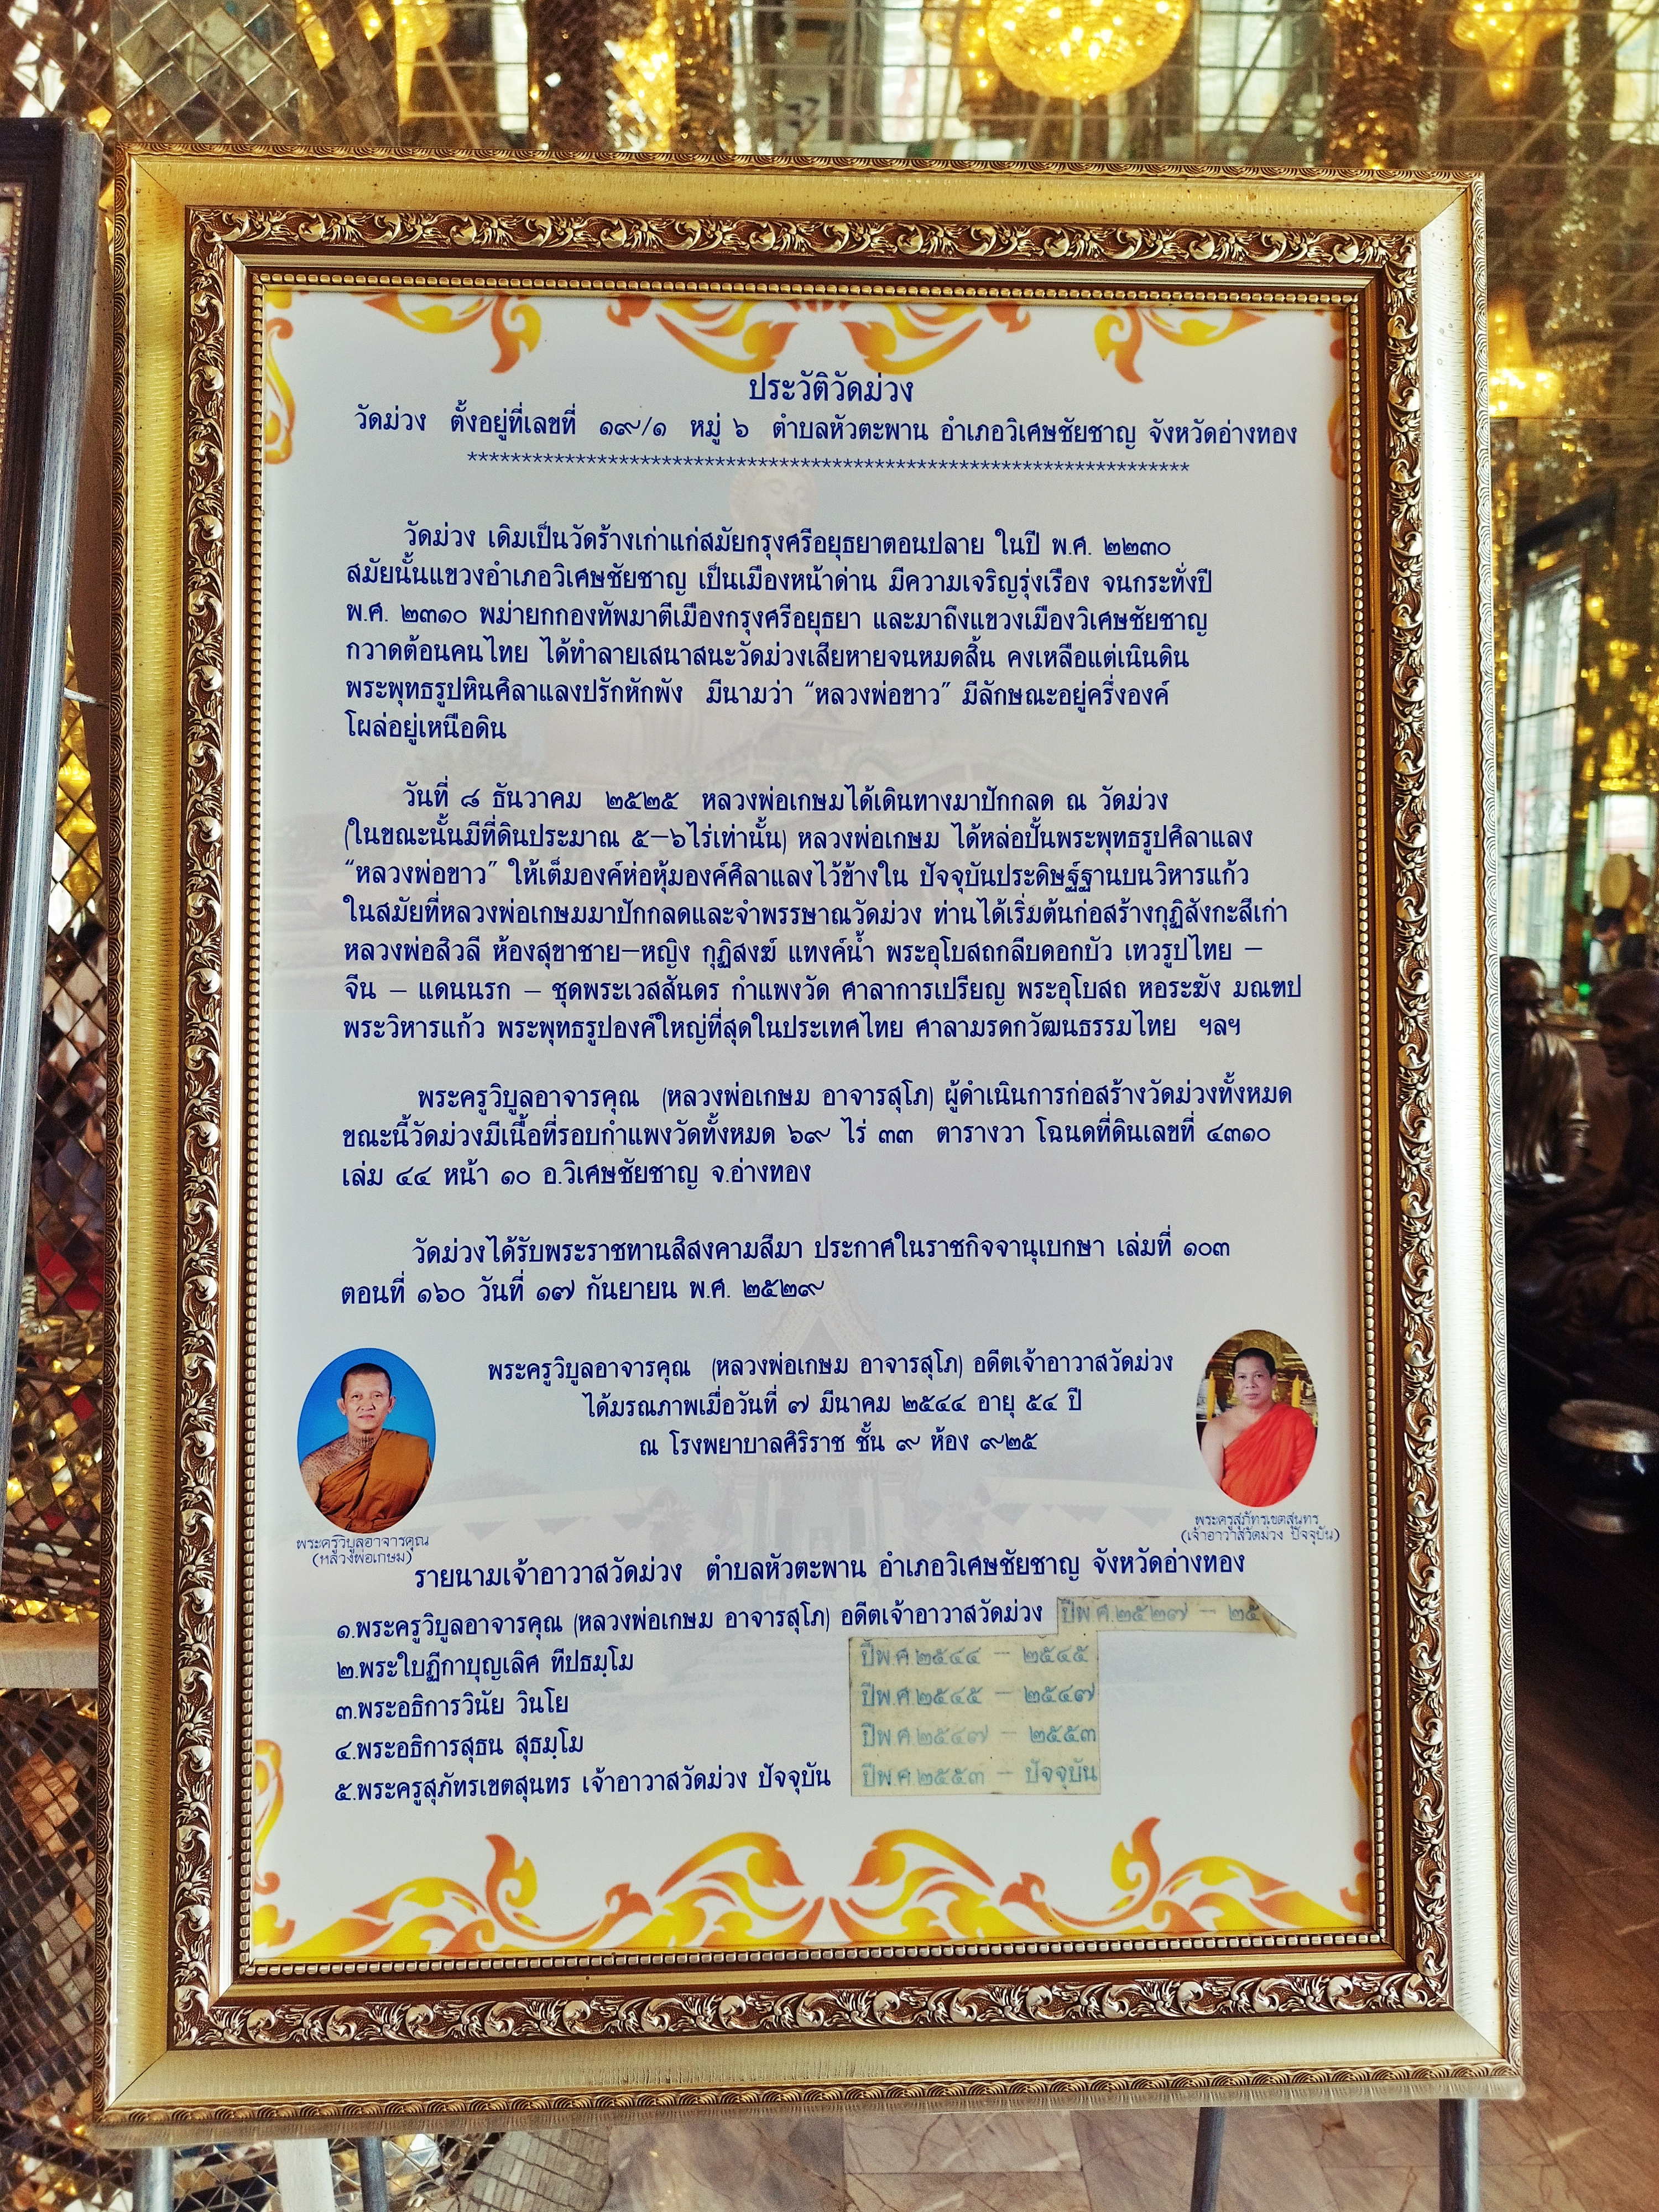 ประวัติวัดม่วง
วัดม่วง ตั้งอยู่ที่เลขที่ ๑๙/๑ หมู่ ๖ ตำบลหัวตะพาน อำเภอวิเศษชัยชาญ จังหวัดอ่างทอง
*******************************************************************
วัดม่วง เดิมเป็นวัดร้างเก่าแก่สมัยกรุงศรีอยุธยาตอนปลาย ในปี พ.ศ. ๒๒๓๐
สมัยนั้นแขวงอำเภอวิเศษชัยชาญ เป็นเมืองหน้าด่าน มีความเจริญรุ่งเรือง จนกระทั่งปี
พ.ศ. ๒๓๑๐ พม่ายกกองทัพมาตีเมืองกรุงศรีอยุธยา และมาถึงแขวงเมืองวิเศษชัยชาญ
กวาดต้อนคนไทย ได้ทำลายเสนาสนะวัดม่วงเสียหายจนหมดสิ้น คงเหลือแต่เนินดิน
พระพุทธรูปหินศิลาแลงปรักหักพัง มีนามว่า “หลวงพ่อขาว” มีลักษณะอยู่ครึ่งองค์
โผล่อยู่เหนือดิน
วันที่ ๘ ธันวาคม ๒๕๒๕ หลวงพ่อเกษมได้เดินทางมาปักกลด ณ วัดม่วง
(ในขณะนั้นมีที่ดินประมาณ ๕–๖ไร่เท่านั้น) หลวงพ่อเกษม ได้หล่อปั้นพระพุทธรูปศิลาแลง
“หลวงพ่อขาว” ให้เต็มองค์ห่อหุ้มองค์ศิลาแลงไว้ข้างใน ปัจจุบันประดิษฐ์ฐานบนวิหารแก้ว
ในสมัยที่หลวงพ่อเกษมมาปักกลดและจำพรรษาณวัดม่วง ท่านได้เริ่มต้นก่อสร้างกุฏิสังกะสีเก่า
หลวงพ่อสิวลี ห้องสุขาชาย–หญิง กุฏิสงฆ์ แทงค์น้ำ พระอุโบสถกลีบดอกบัว เทวรูปไทย –
จีน – แดนนรก – ชุดพระเวสสันดร กำแพงวัด ศาลาการเปรียญ พระอุโบสถ หอระฆัง มณฑป
พระวิหารแก้ว พระพุทธรูปองค์ใหญ่ที่สุดในประเทศไทย ศาลามรดกวัฒนธรรมไทย ฯลฯ
พระครูวิบูลอาจารคุณ (หลวงพ่อเกษม อาจารสุโภ) ผู้ดำเนินการก่อสร้างวัดม่วงทั้งหมด
ขณะนี้วัดม่วงมีเนื้อที่รอบกำแพงวัดทั้งหมด ๖๙ ไร่ ๓๓ ตารางวา โฉนดที่ดินเลขที่ ๔๓๑๐
เล่ม ๔๔ หน้า ๑๐ อ.วิเศษชัยชาญ จ.อ่างทอง
วัดม่วงได้รับพระราชทานสิสงคามสีมา ประกาศในราชกิจจานุเบกษา เล่มที่ ๑๐๓
ตอนที่ ๑๖๐ วันที่ ๑๗ กันยายน พ.ศ. ๒๕๒๙
พระครูวิบูลอาจารคุณ (หลวงพ่อเกษม อาจารสุโภ) อดีตเจ้าอาวาสวัดม่วง
ได้มรณภาพเมื่อวันที่ ๗ มีนาคม ๒๕๔๔ อายุ ๕๔ ปี
ณ โรงพยาบาลศิริราช ชั้น ๙ ห้อง ๙๒๕
พระครูวิบูลอาจารคุณ
(หลวงพ่อเกษม)
พระครูสุภัทรเขตสุนทร
(เจ้าอาวาสวัดม่วง ปัจจุบัน)
รายนามเจ้าอาวาสวัดม่วง ตำบลหัวตะพาน อำเภอวิเศษชัยชาญ จังหวัดอ่างทอง
๑.พระครูวิบูลอาจารคุณ (หลวงพ่อเกษม อาจารสุโภ) อดีตเจ้าอาวาสวัดม่วง ปีพ.ศ.๒๕๒๗ – ๒๕
๒.พระใบฏีกาบุญเลิศ ทีปธมฺโม ปีพ.ศ.๒๕๔๔ – ๒๕๔๕
๓.พระอธิการวินัย วินโย ปีพ.ศ.๒๕๔๕ – ๒๕๔๗
๔.พระอธิการสุธน สุธมฺโม ปีพ.ศ.๒๕๔๗ – ๒๕๕๓
๕.พระครูสุภัทรเขตสุนทร เจ้าอาวาสวัดม่วง ปัจจุบัน ปีพ.ศ.๒๕๕๓ – ปัจจุบัน